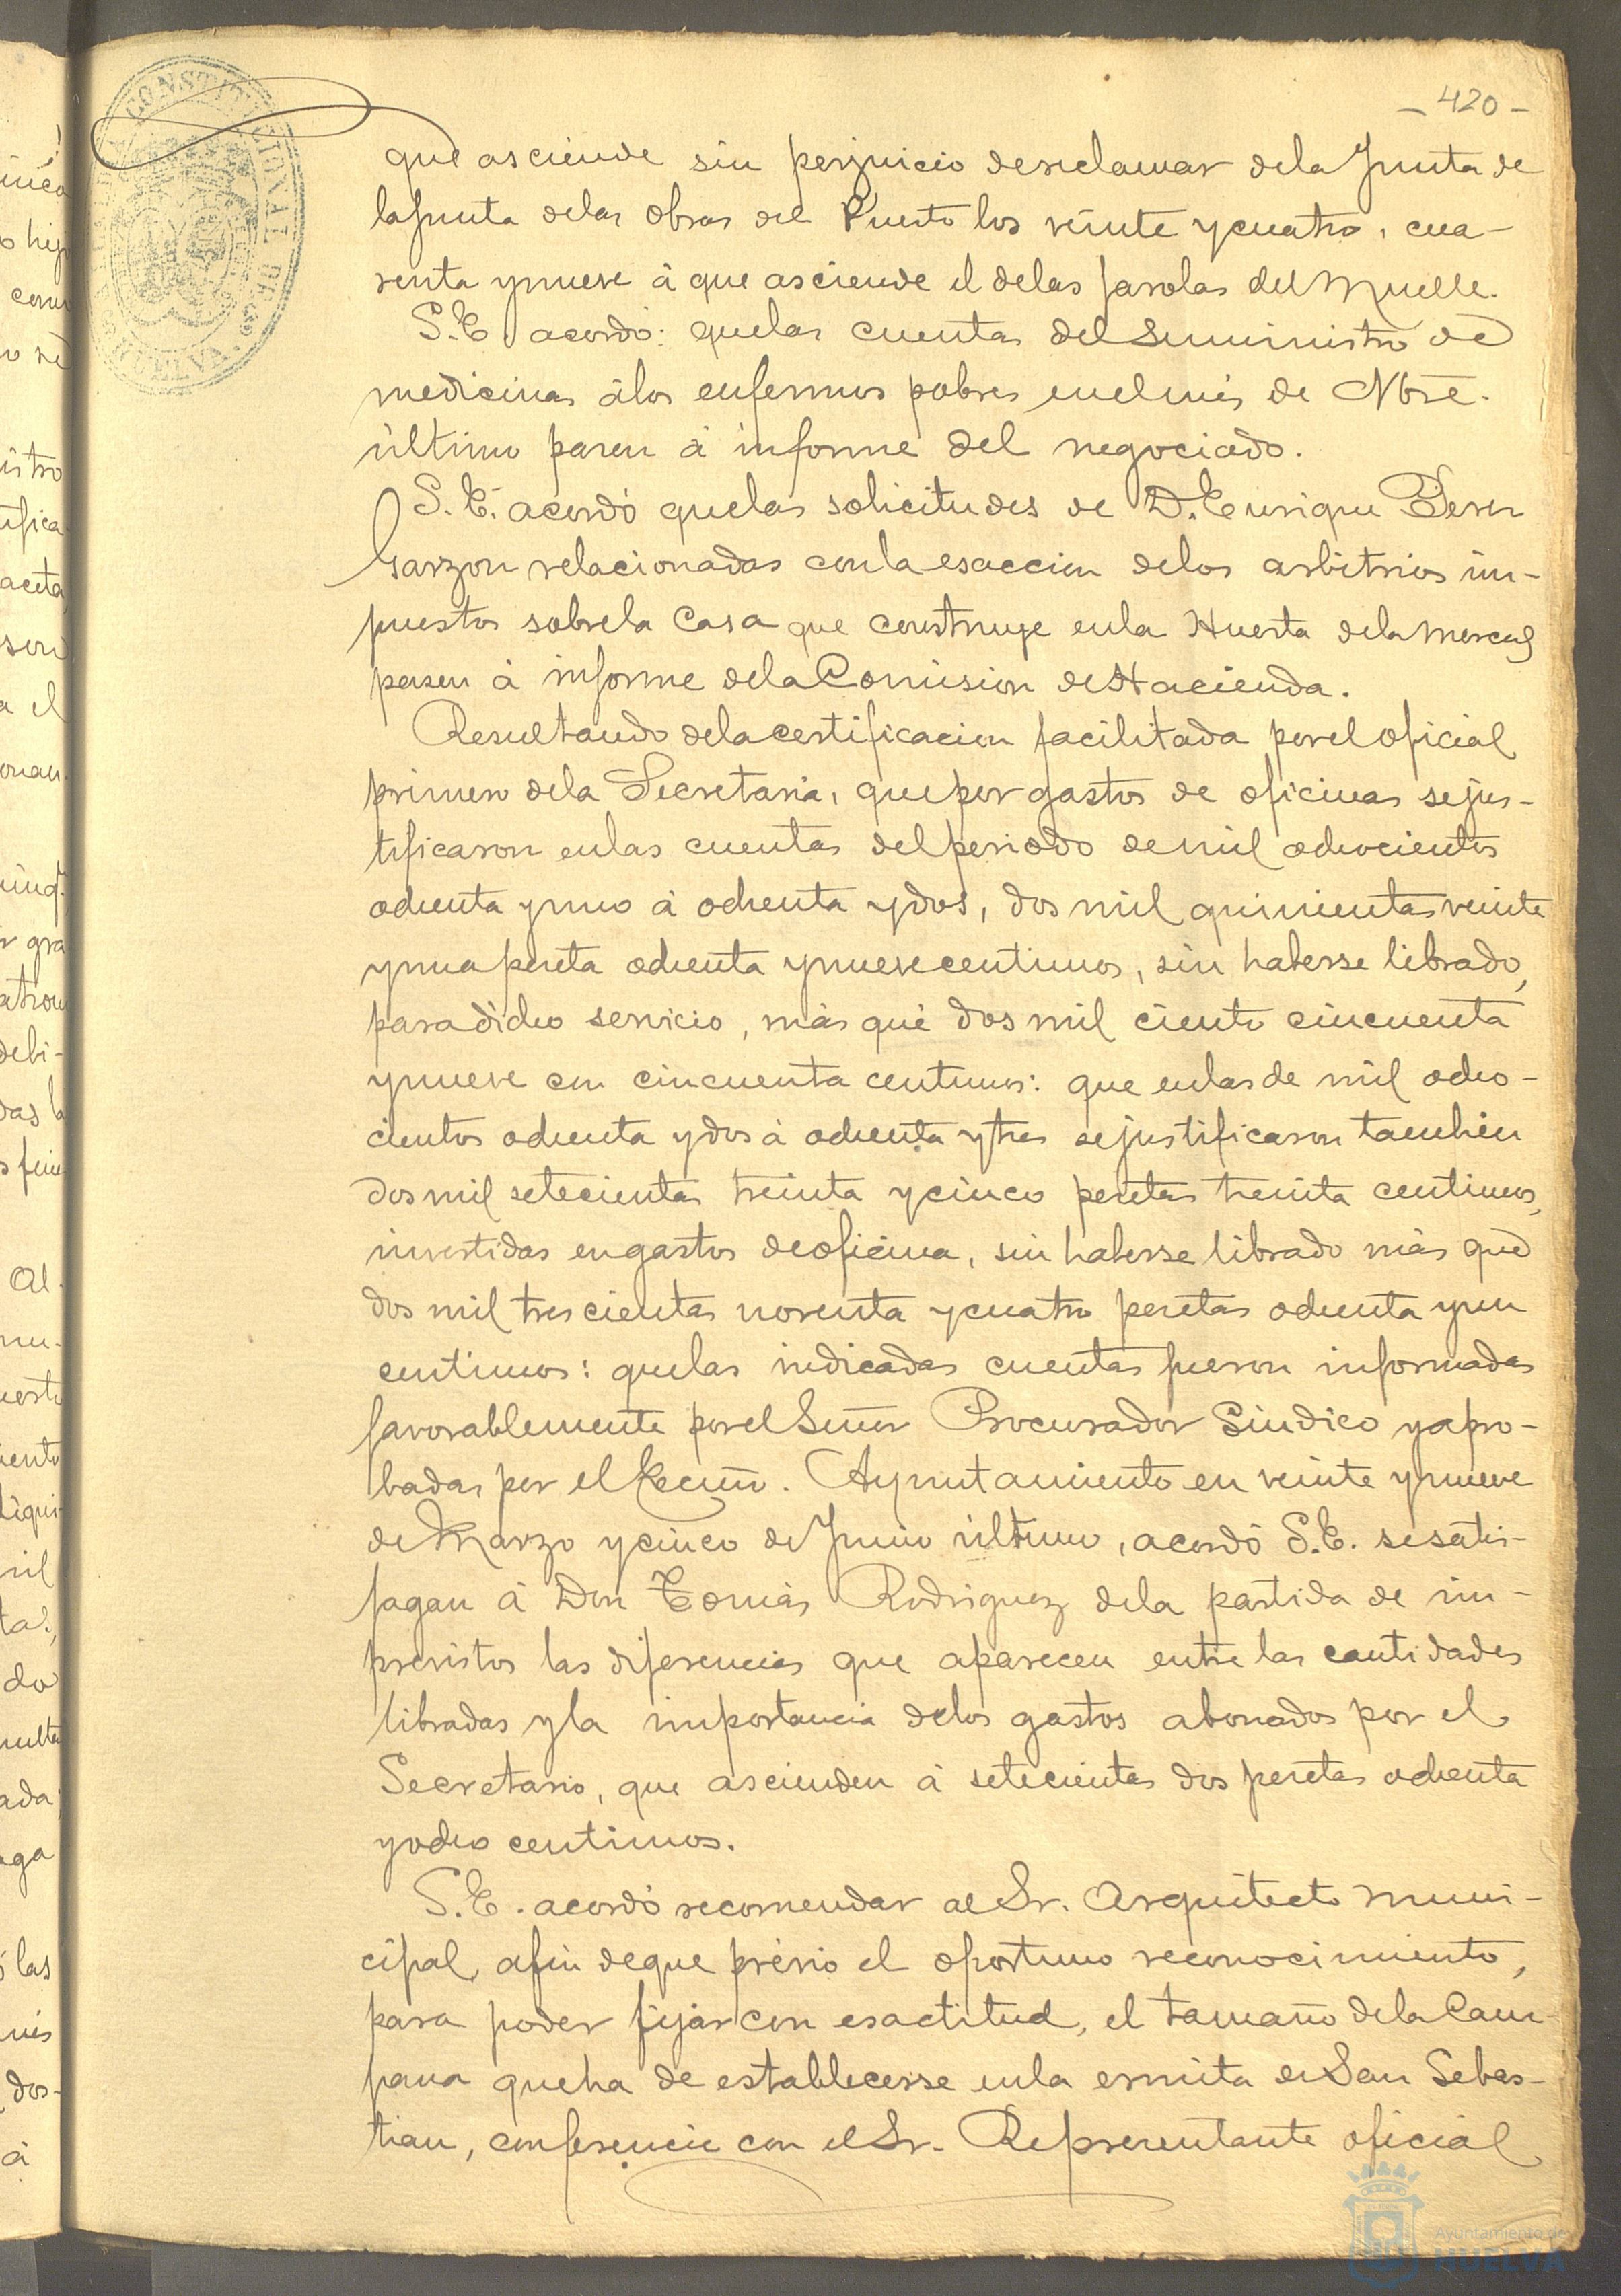 - 420 -
que asciende sin perjuicio de reclamar de la Junta de
la Junta de las Obras del Puerto los veinte y cuatro, cua-
renta y nueve á que asciende el de las farolas del Muelle.
S.E. acordó: que las cuentas del suministro de
medicinas á los enfermos pobres en el mes de Nbre.
último pasen á informe del negociado.
S.E. acordó que las solicitudes de D. Enrique Perez
Garzon relacionadas con la esaccion de los arbitrios im-
puestos sobre la Casa que construye en la Huerta de la Merced
pasen á informe de la Comision de Hacienda.
Resultando de la certificacion facilitada por el oficial
primero de la Secretaria, que por gastos de oficinas se jus-
tificaron en las cuentas del periodo de mil ochocientos
ochenta y uno á ochenta y dos, dos mil quinientas veinte
y una peseta ochenta y nueve centimos, sin haberse librado,
para dicho servicio, más que dos mil ciento cincuenta
y nueve con cincuenta centimos: que en las de mil ocho-
cientos ochenta y dos á ochenta y tres se justificaron tambien
dos mil setecientas treinta y cinco pesetas treinta centimos,
invertidas en gastos de oficina, sin haberse librado más que
dos mil trescientas noventa y cuatro pesetas ochenta y un
centimos: que las indicadas cuentas fueron informadas
favorablemente por el Señor Procurador Sindico y apro-
badas por el Excmo. Ayuntamiento en veinte y nueve
de Marzo y cinco de Junio último, acordó S.E. se satis-
fagan á Don Tomás Rodriguez de la partida de im-
previstos las diferencias que aparecen entre las cantidades
libradas y la importancia de los gastos abonados por el
Secretario, que ascienden á setecientas dos pesetas ochenta
y ocho centimos.
S.E. acordó recomendar al Sr. Arquitecto muni-
cipal, afin de que prévio el oportuno reconocimiento,
para poder fijar con esactitud, el tamaño de la Cam-
pana que ha de establecerse en la ermita de San Sebas-
tian, conferencie con el Sr. Representante oficial
Ayuntamiento de
HUELVA